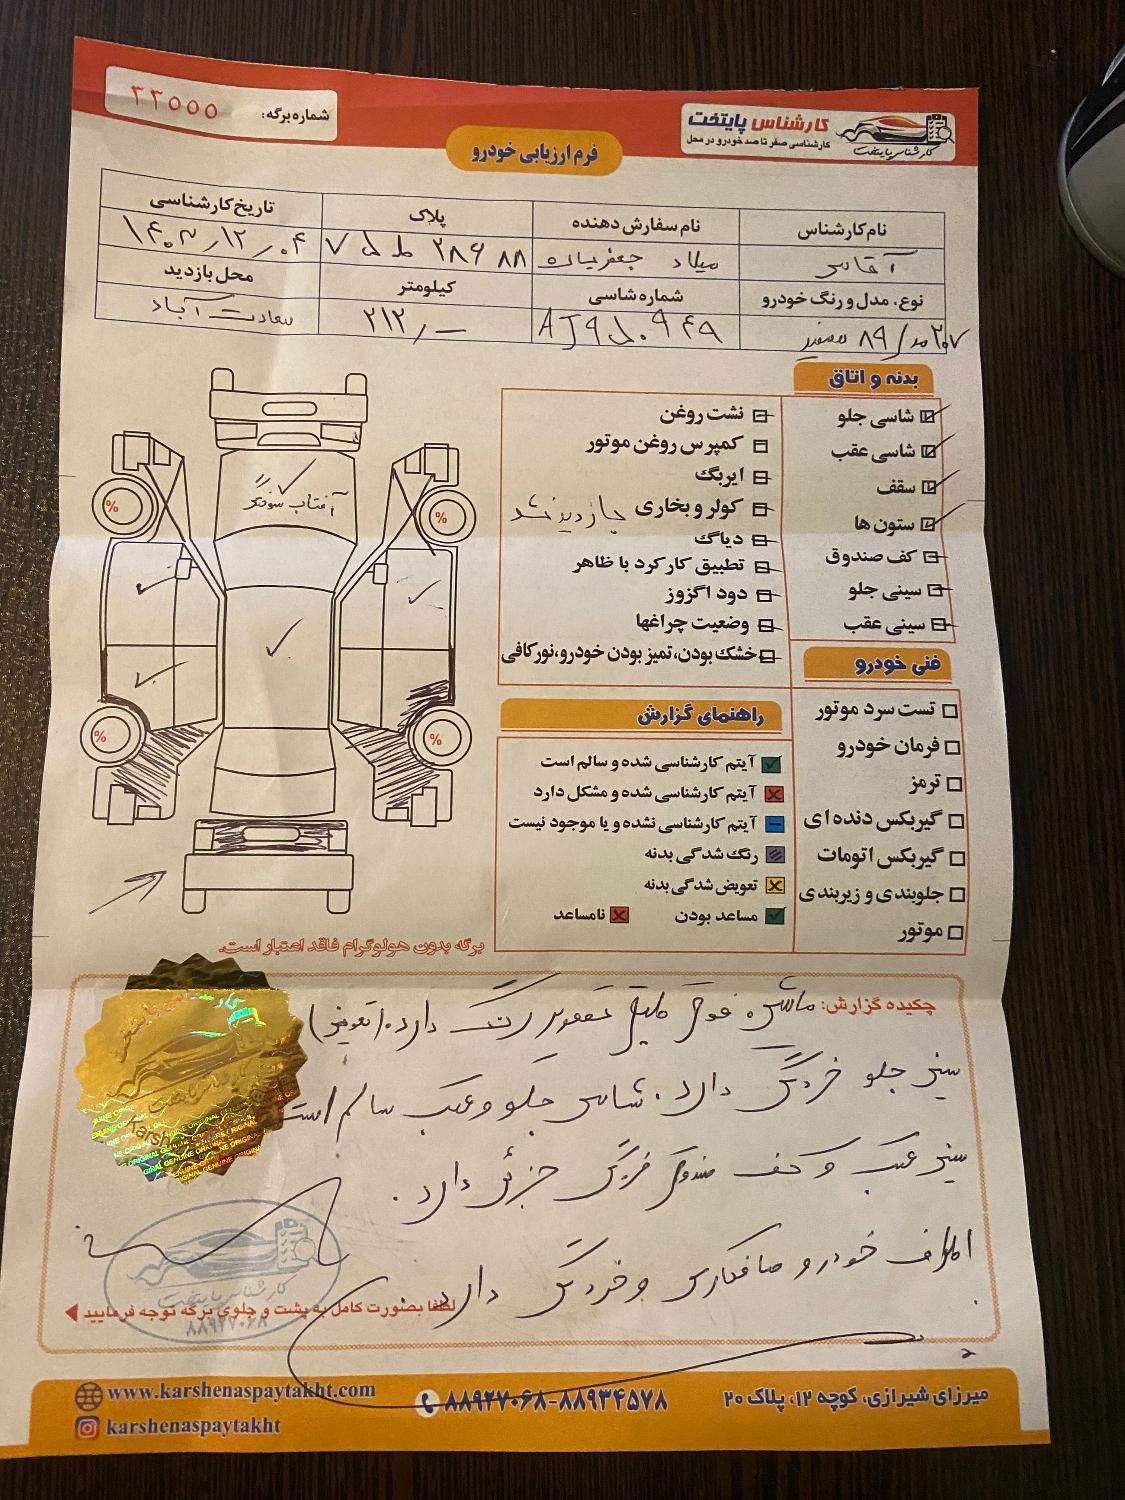 شماره برگه: ۲۲۵۵۵
کارشناس پایتخت
کارشناسی صفر تا صد خودرو در محل
کارشناس پایتخت
فرم ارزیابی خودرو
نام کارشناس
نام سفارش دهنده
پلاک
تاریخ کارشناسی
میلاد
نوع، مدل و رنگ خودرو
شماره شاسی
کیلومتر
محل بازدید
۲۰۷ ۸۹ سفید
۲۱۲٫
سعادت آباد
بدنه و اتاق
شاسی جلو
شاسی عقب
سقف
ستون ها
کف صندوق
سینی جلو
سینی عقب
نشت روغن
کمپرس روغن موتور
ایربگ
کولر و بخاری
بازدید نشد
دیاگ
تطبیق کارکرد با ظاهر
دود اگزوز
وضعیت چراغها
خشک بودن، تمیز بودن خودرو، نور کافی
فنی خودرو
تست سرد موتور
فرمان خودرو
ترمز
گیربکس دنده ای
گیربکس اتومات
جلوبندی و زیربندی
موتور
راهنمای گزارش
آیتم کارشناسی شده و سالم است
آیتم کارشناسی شده و مشکل دارد
آیتم کارشناسی نشده و یا موجود نیست
رنگ شدگی بدنه
تعویض شدگی بدنه
مساعد بودن
نامساعد
آفتاب سوختگی
%
%
%
%
برگه بدون هولوگرام فاقد اعتبار است.
چکیده گزارش: ماشین فوق طبق تصویر رنگ دارد. (تعویض)
سینی جلو خوردگی دارد. شاسی جلو و عقب سالم است
سینی عقب و کف صندوق خوردگی جزئی دارد.
اطراف خودرو صافکاری و خوردگی دارد
لطفا بصورت کامل به پشت و جلوی برگه توجه فرمایید
کارشناس پایتخت
۸۸۹۲۷۰۶۸
www.karshenaspaytakht.com
karshenaspaytakht
۸۸۹۲۷۰۶۸-۸۸۹۳۴۵۷۸
میرزای شیرازی، کوچه ۱۲، پلاک ۲۰